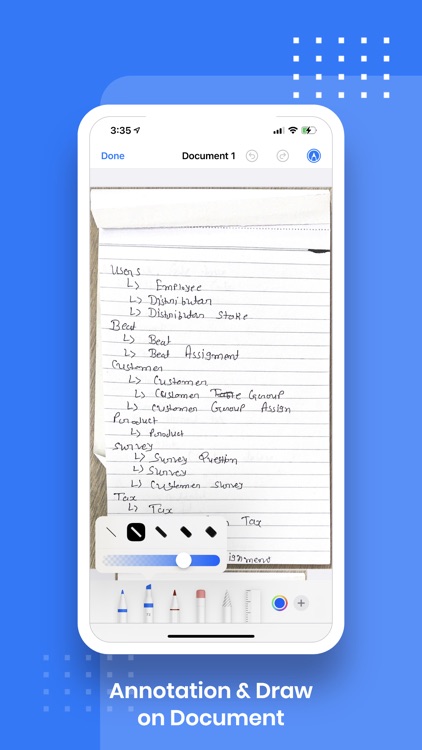 3:35
Done
Document 1
Users
↳ Employee
↳ Distributor
↳ Distributor Stoke
Beat
↳ Beat
↳ Beat Assignment
Customer
↳ Customer
↳ Customer Group
↳ Customer Group Assign
Product
↳ Product
Survey
↳ Survey Question
↳ Survey
↳ Customer Survey
Tax
↳ Tax
Tax
Annotation & Draw
on Document